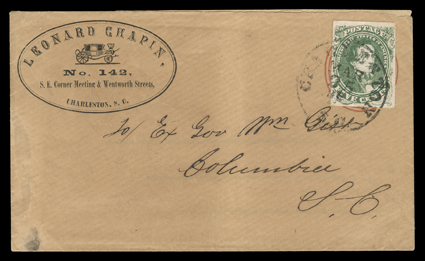 LEONARD CHAPIN,
No. 142,
S. E. Corner Meeting & Wentworth Streets,
CHARLESTON, S. C.
POSTAGE
To/ Ex Gov Wm Gist
Columbia
S.C.